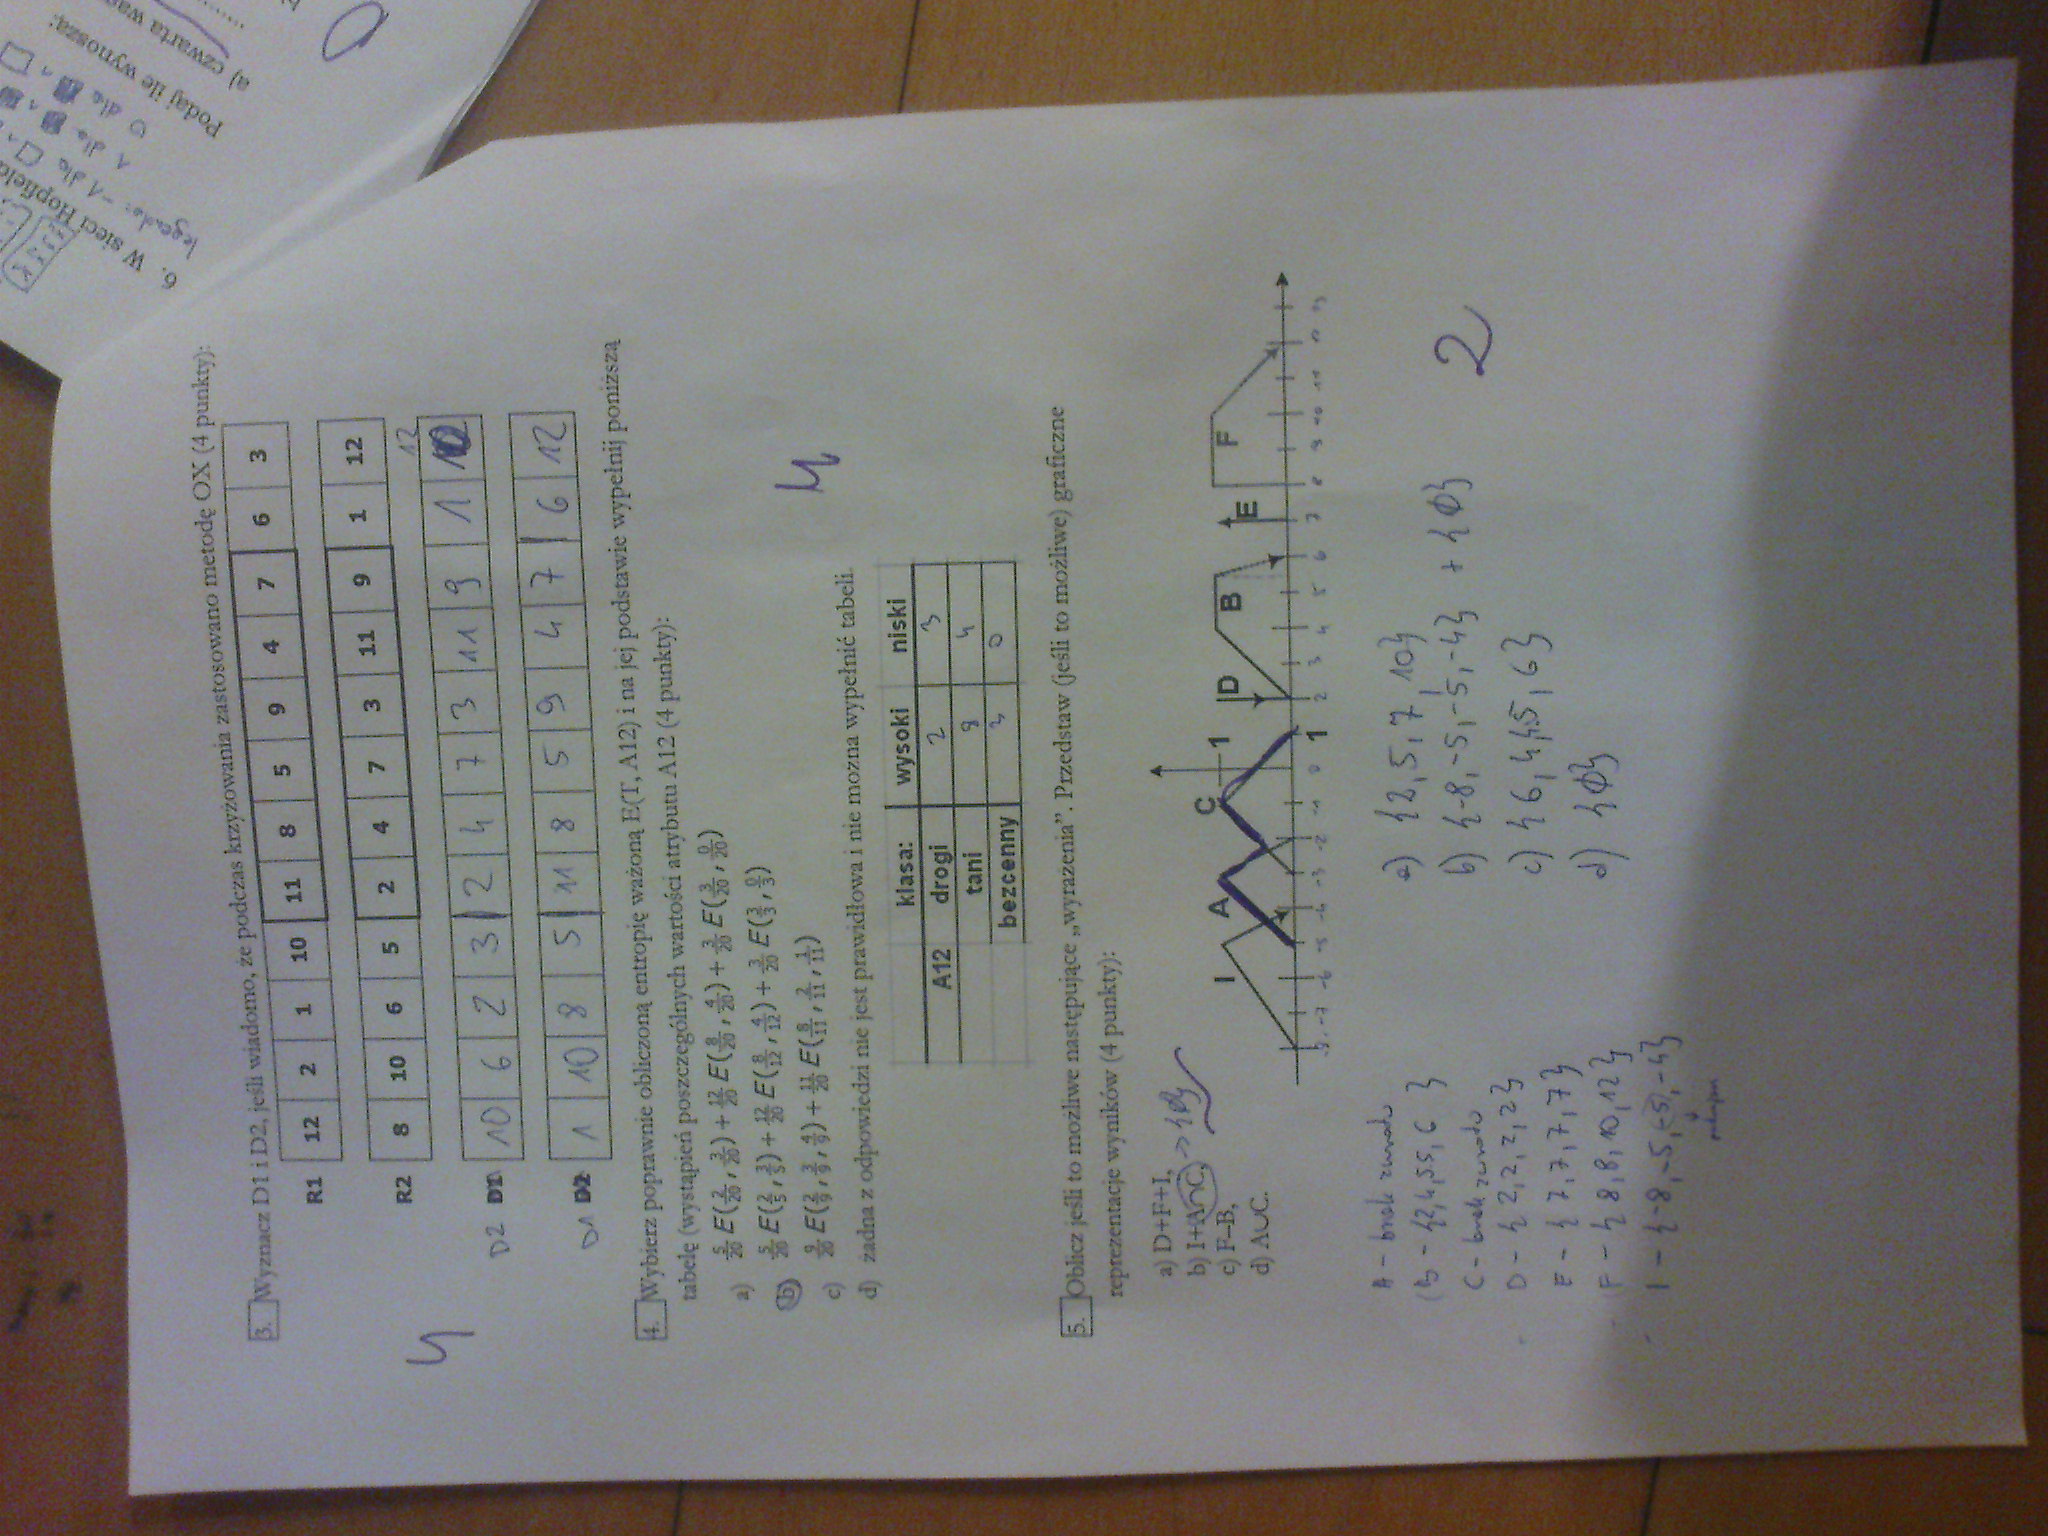 3. Wyznacz D1 i D2, jeśli wiadomo, że podczas krzyżowania zastosowano metodę OX (4 punkty):
R1 12 2 1 10 11 8 5 9 4 7 6 3
R2 8 10 6 5 2 4 7 3 11 9 1 12
12
D2 D1 10 6 2 3 2 4 7 3 11 9 1
D1 D2 1 10 8 5 11 8 5 9 4 7 6 12
4
4. Wybierz poprawnie obliczoną entropię ważoną E(T, A12) i na jej podstawie wypełnij poniższą
tabelę (wystąpień poszczególnych wartości atrybutu A12 (4 punkty):
a) 5/20 E(2/20, 3/20) + 12/20 E(8/20, 4/20) + 3/20 E(3/20, 0/20)
b) 5/20 E(2/5, 3/5) + 12/20 E(8/12, 4/12) + 3/20 E(3/3, 0/3)
c) 9/20 E(2/9, 3/9, 4/9) + 11/20 E(8/11, 2/11, 1/11)
d) żadna z odpowiedzi nie jest prawidłowa i nie można wypełnić tabeli.
4
klasa: wysoki niski
A12 drogi 2 3
tani 8 4
bezcenny 3 0
5. Oblicz jeśli to możliwe następujące „wyrażenia”. Przedstaw (jeśli to możliwe) graficzne
reprezentacje wyników (4 punkty):
a) D+F+I,
b) I+A∩C, -> {Φ}
c) F–B,
d) A∪C.
I A C 1 D B E F
-8 -7 -6 -5 -4 -3 -2 -1 0 1 2 3 4 5 6 7 8 9 10 11 12 13
A -
B - {2, 4, 5.5, 6}
C -
D - {2, 2, 2, 2}
E - {7, 7, 7, 7}
F - {8, 8, 10, 12}
I - {-8, -5, -5, -4}
a) {2, 5, 7, 10}
b) {-8, -5, -5, -4} + {Φ}
c) {6, 4, 4.5, 6}
d) {Φ}
2
6. W sieci
legenda: -1 dla
1 dla
0 dla
Podaj ile wynoszą:
a) czwarta